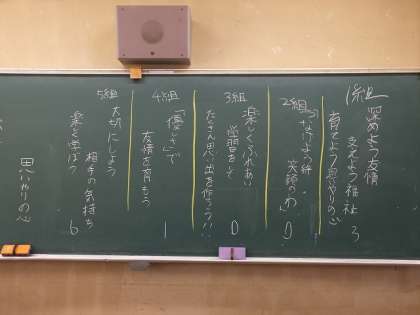 1組
深めよう友情
支えよう福祉
育てよう思いやりの心
3
2組
つなげよう絆
笑顔のわ」
0
3組
楽しくふれあい
学習をして
たくさん思い出を作ろう!!
0
4組
「優しさ」で
友情を育もう
1
5組
大切にしよう
相手の気持ち
楽しく学ぼう
6
思いやりの心